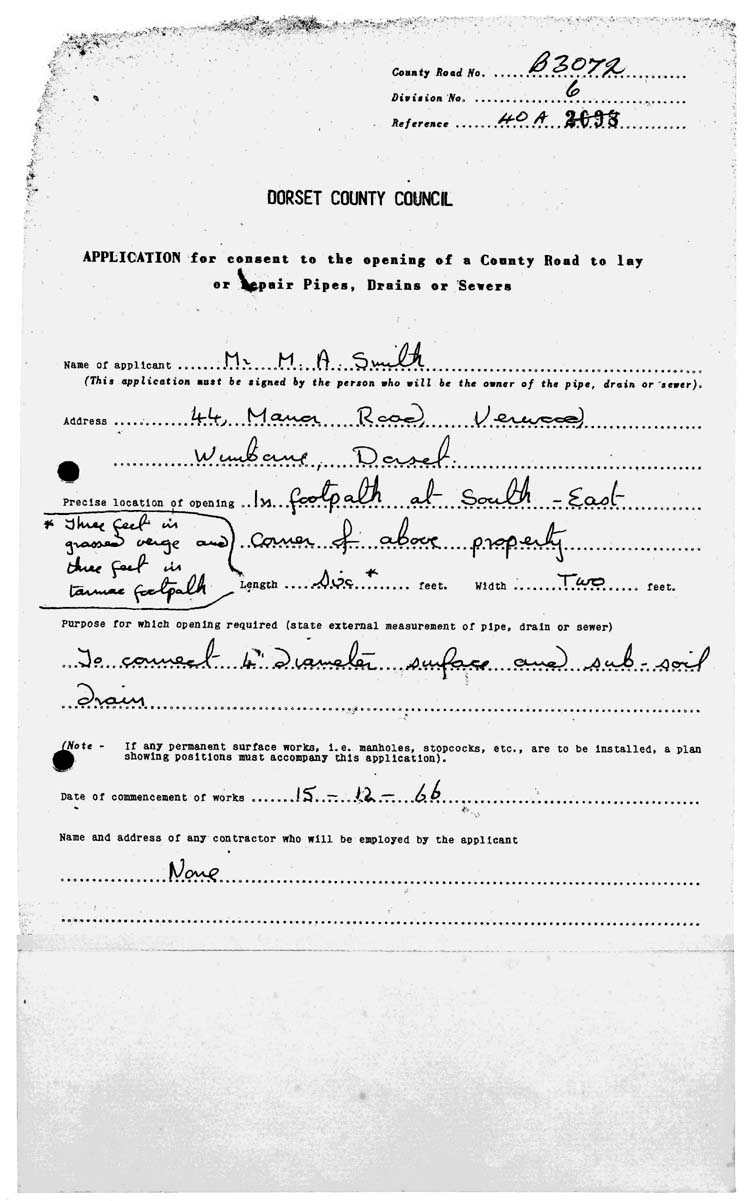 County Road No. B3072
Division No. 6
Reference 40A
DORSET COUNTY COUNCIL
APPLICATION for consent to the opening of a County Road to lay
or repair Pipes, Drains or Sewers
Name of applicant Mr. M. A. Smith
(This application must be signed by the person who will be the owner of the pipe, drain or sewer).
Address 44, Manor Road, Verwood,
Wimborne, Dorset.
Precise location of opening In footpath at South-East
corner of above property
* Three feet in
grassed verge and
three feet in
tarmac footpath
Length Six * feet. Width Two feet.
Purpose for which opening required (state external measurement of pipe, drain or sewer)
To connect 4" diameter surface and sub-soil
drain
(Note - If any permanent surface works, i.e. manholes, stopcocks, etc., are to be installed, a plan
showing positions must accompany this application).
Date of commencement of works 15 - 12 - 66
Name and address of any contractor who will be employed by the applicant
None